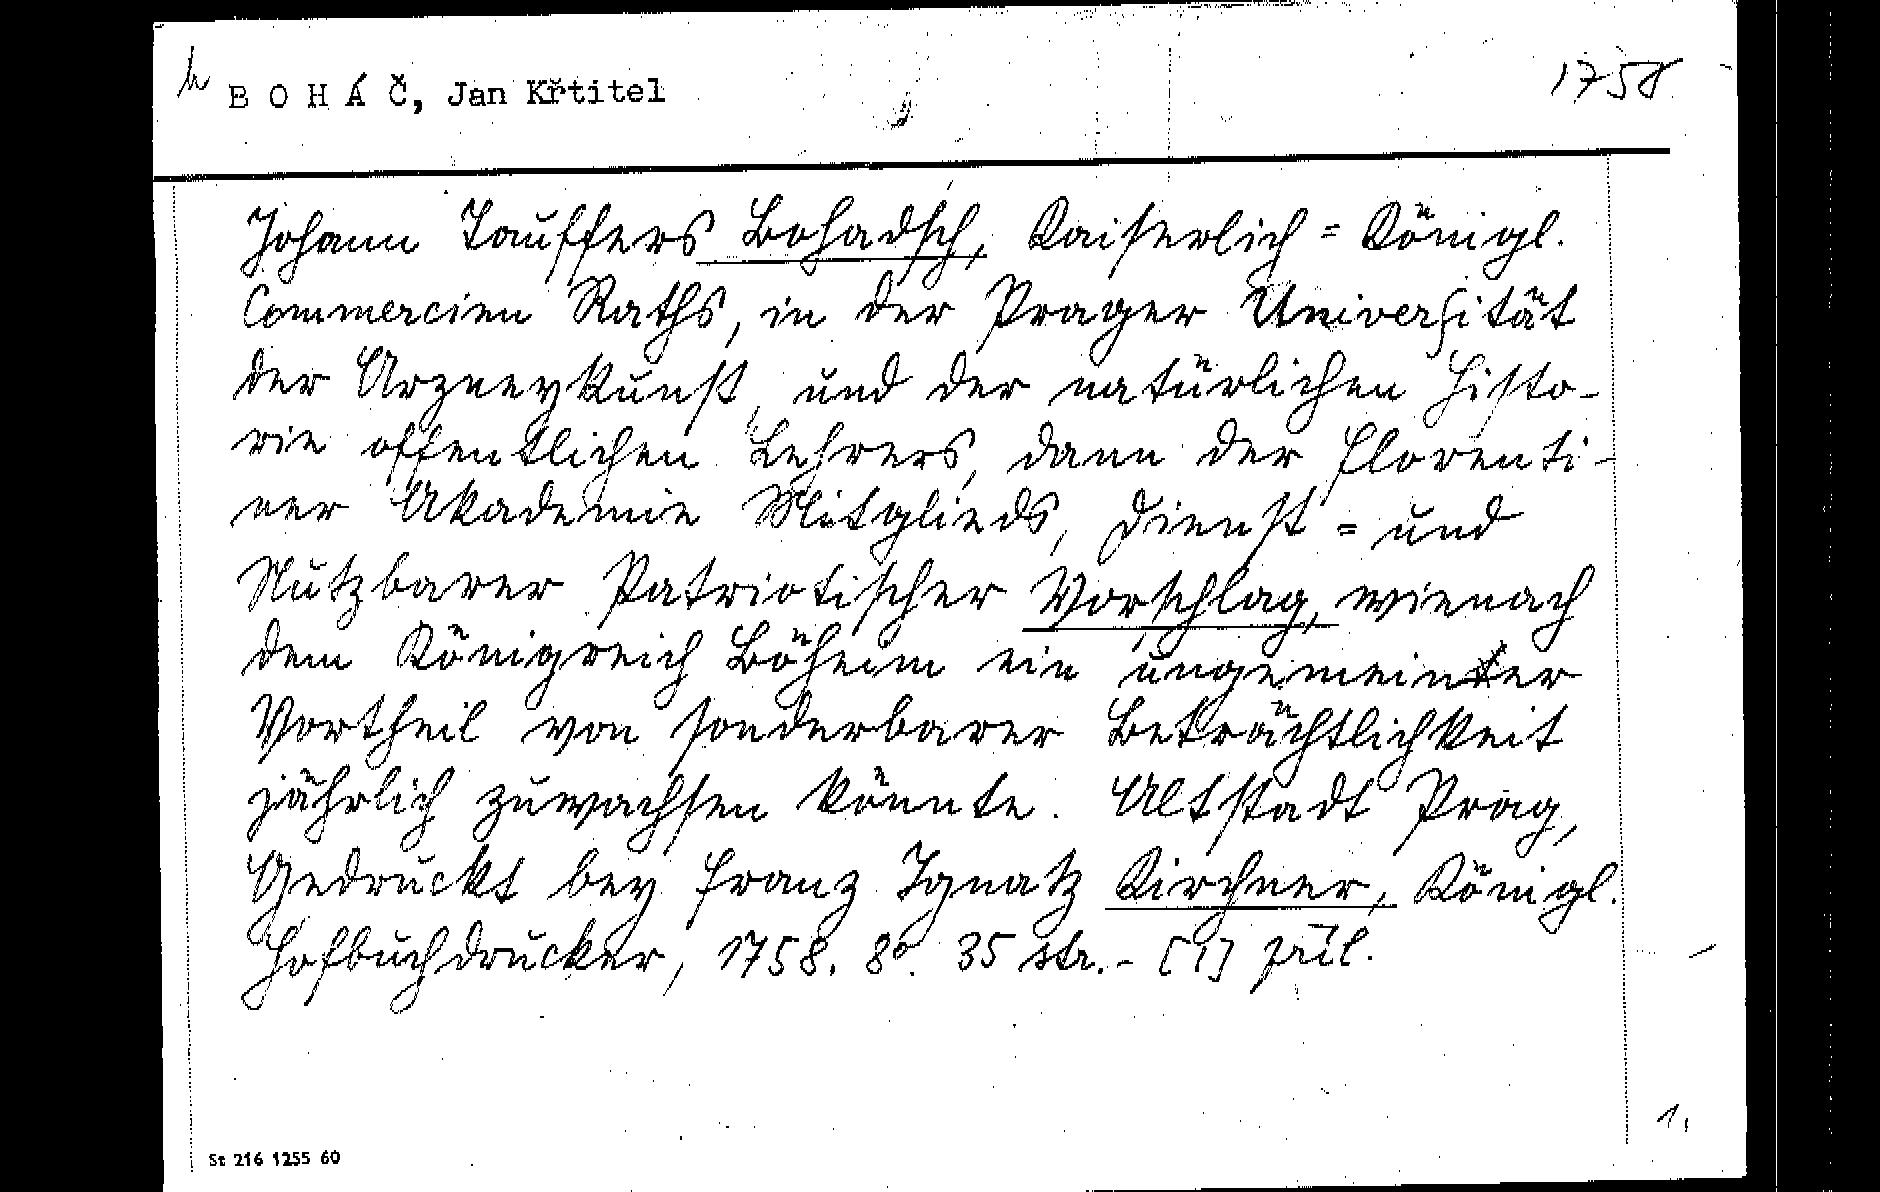 h BOHÁČ, Jan Křtitel 1758
Johann Tauffers Bohadsch, Kaiserlich = Königl.
Commercien Raths, in der Prager Universität
der Arzneykunst, und der natürlichen Histo-
rie offentlichen Lehrers, dann der Florenti-
ner Akademie Mitglieds, Dienst = und
Nutzbarer Patriotischer Vorschlag, wienach
dem Königreich Böheim ein ungemeiner
Vortheil von sonderbarer Beträchtlichkeit
jährlich zuwachsen könnte. Altstadt Prag,
Gedruckt bey Franz Ignatz Kirchner, Königl.
Hofbuchdrucker, 1758. 8°. 35 str. - [1] příl.
1.
St 216 1255 60